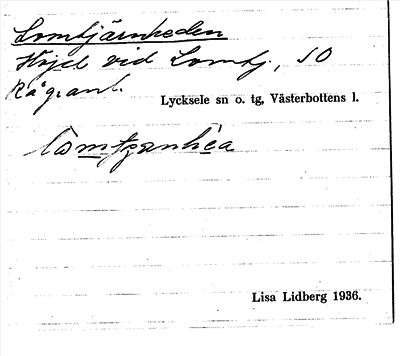 Lomtjärnheden
Höjd vid Lomtj., SO
Rågrant.
Lycksele sn o. tg, Västerbottens l.
Lisa Lidberg 1936.